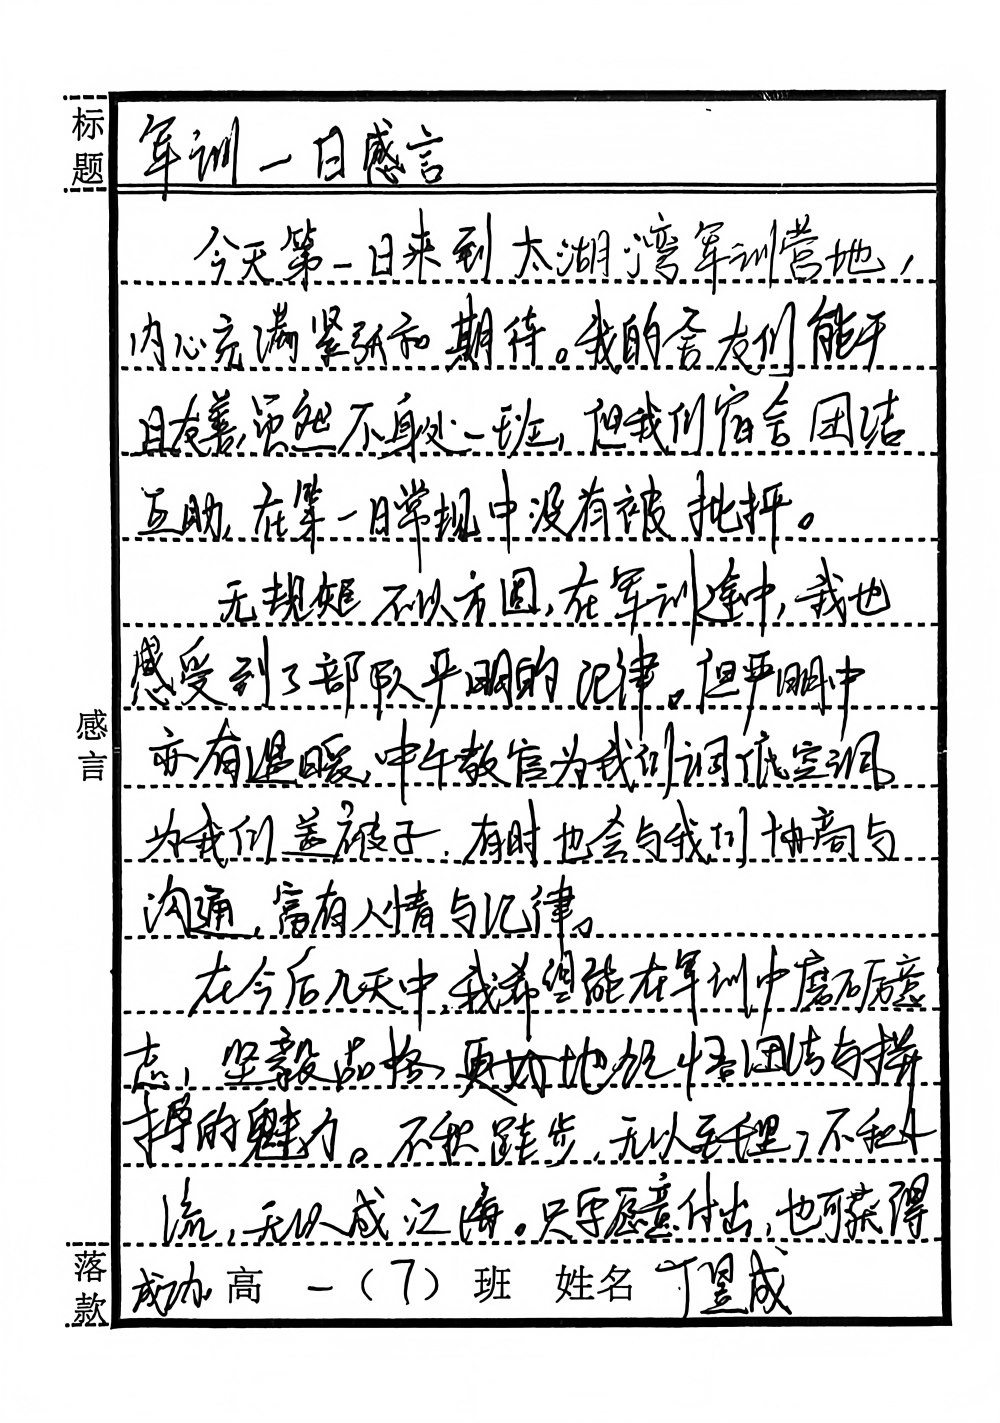 标题
军训一日感言
今天第一日来到太湖湾军训营地，
内心充满紧张和期待。我的舍友们能干
且友善，虽然不身处一班，但我们宿舍团结
互助，在第一日常规中没有被批评。
无规矩不以方圆，在军训途中，我也
感受到了部队严明的纪律。但严明中
亦有温暖，中午教官为我们调低空调，
为我们盖被子，有时也会与我们协商与
沟通，富有人情与纪律。
感言
在今后几天中，我希望能在军训中磨砺意
志，坚毅品格，更好地领悟团结与拼
搏的魅力。不积跬步，无以至千里；不积小
流，无以成江海。只要愿意付出，也可获得
落款
成功 高一（7）班 姓名 丁昱成